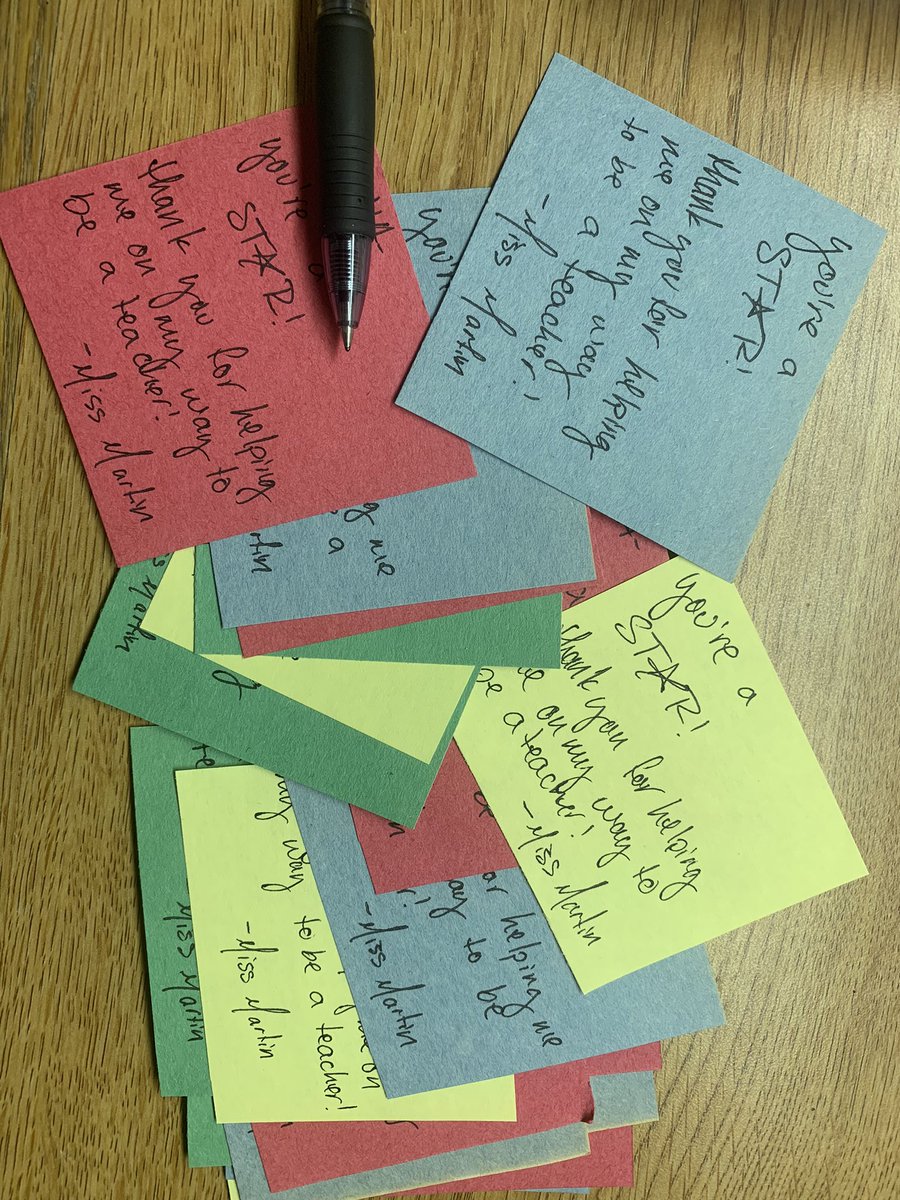 you're a
STAR!
thank you for helping
me on my way
to be a teacher!
-Miss Martin
you're
STAR!
thank you for helping
me on my way to
be a teacher!
-Miss Martin
you'r
me
a
you're a
STAR!
thank you for helping
on my way to
a teacher!
-Miss Martin
Martin
helping me
to be
-Miss Martin
way to be a teacher!
-Miss Martin
on
Miss Martin